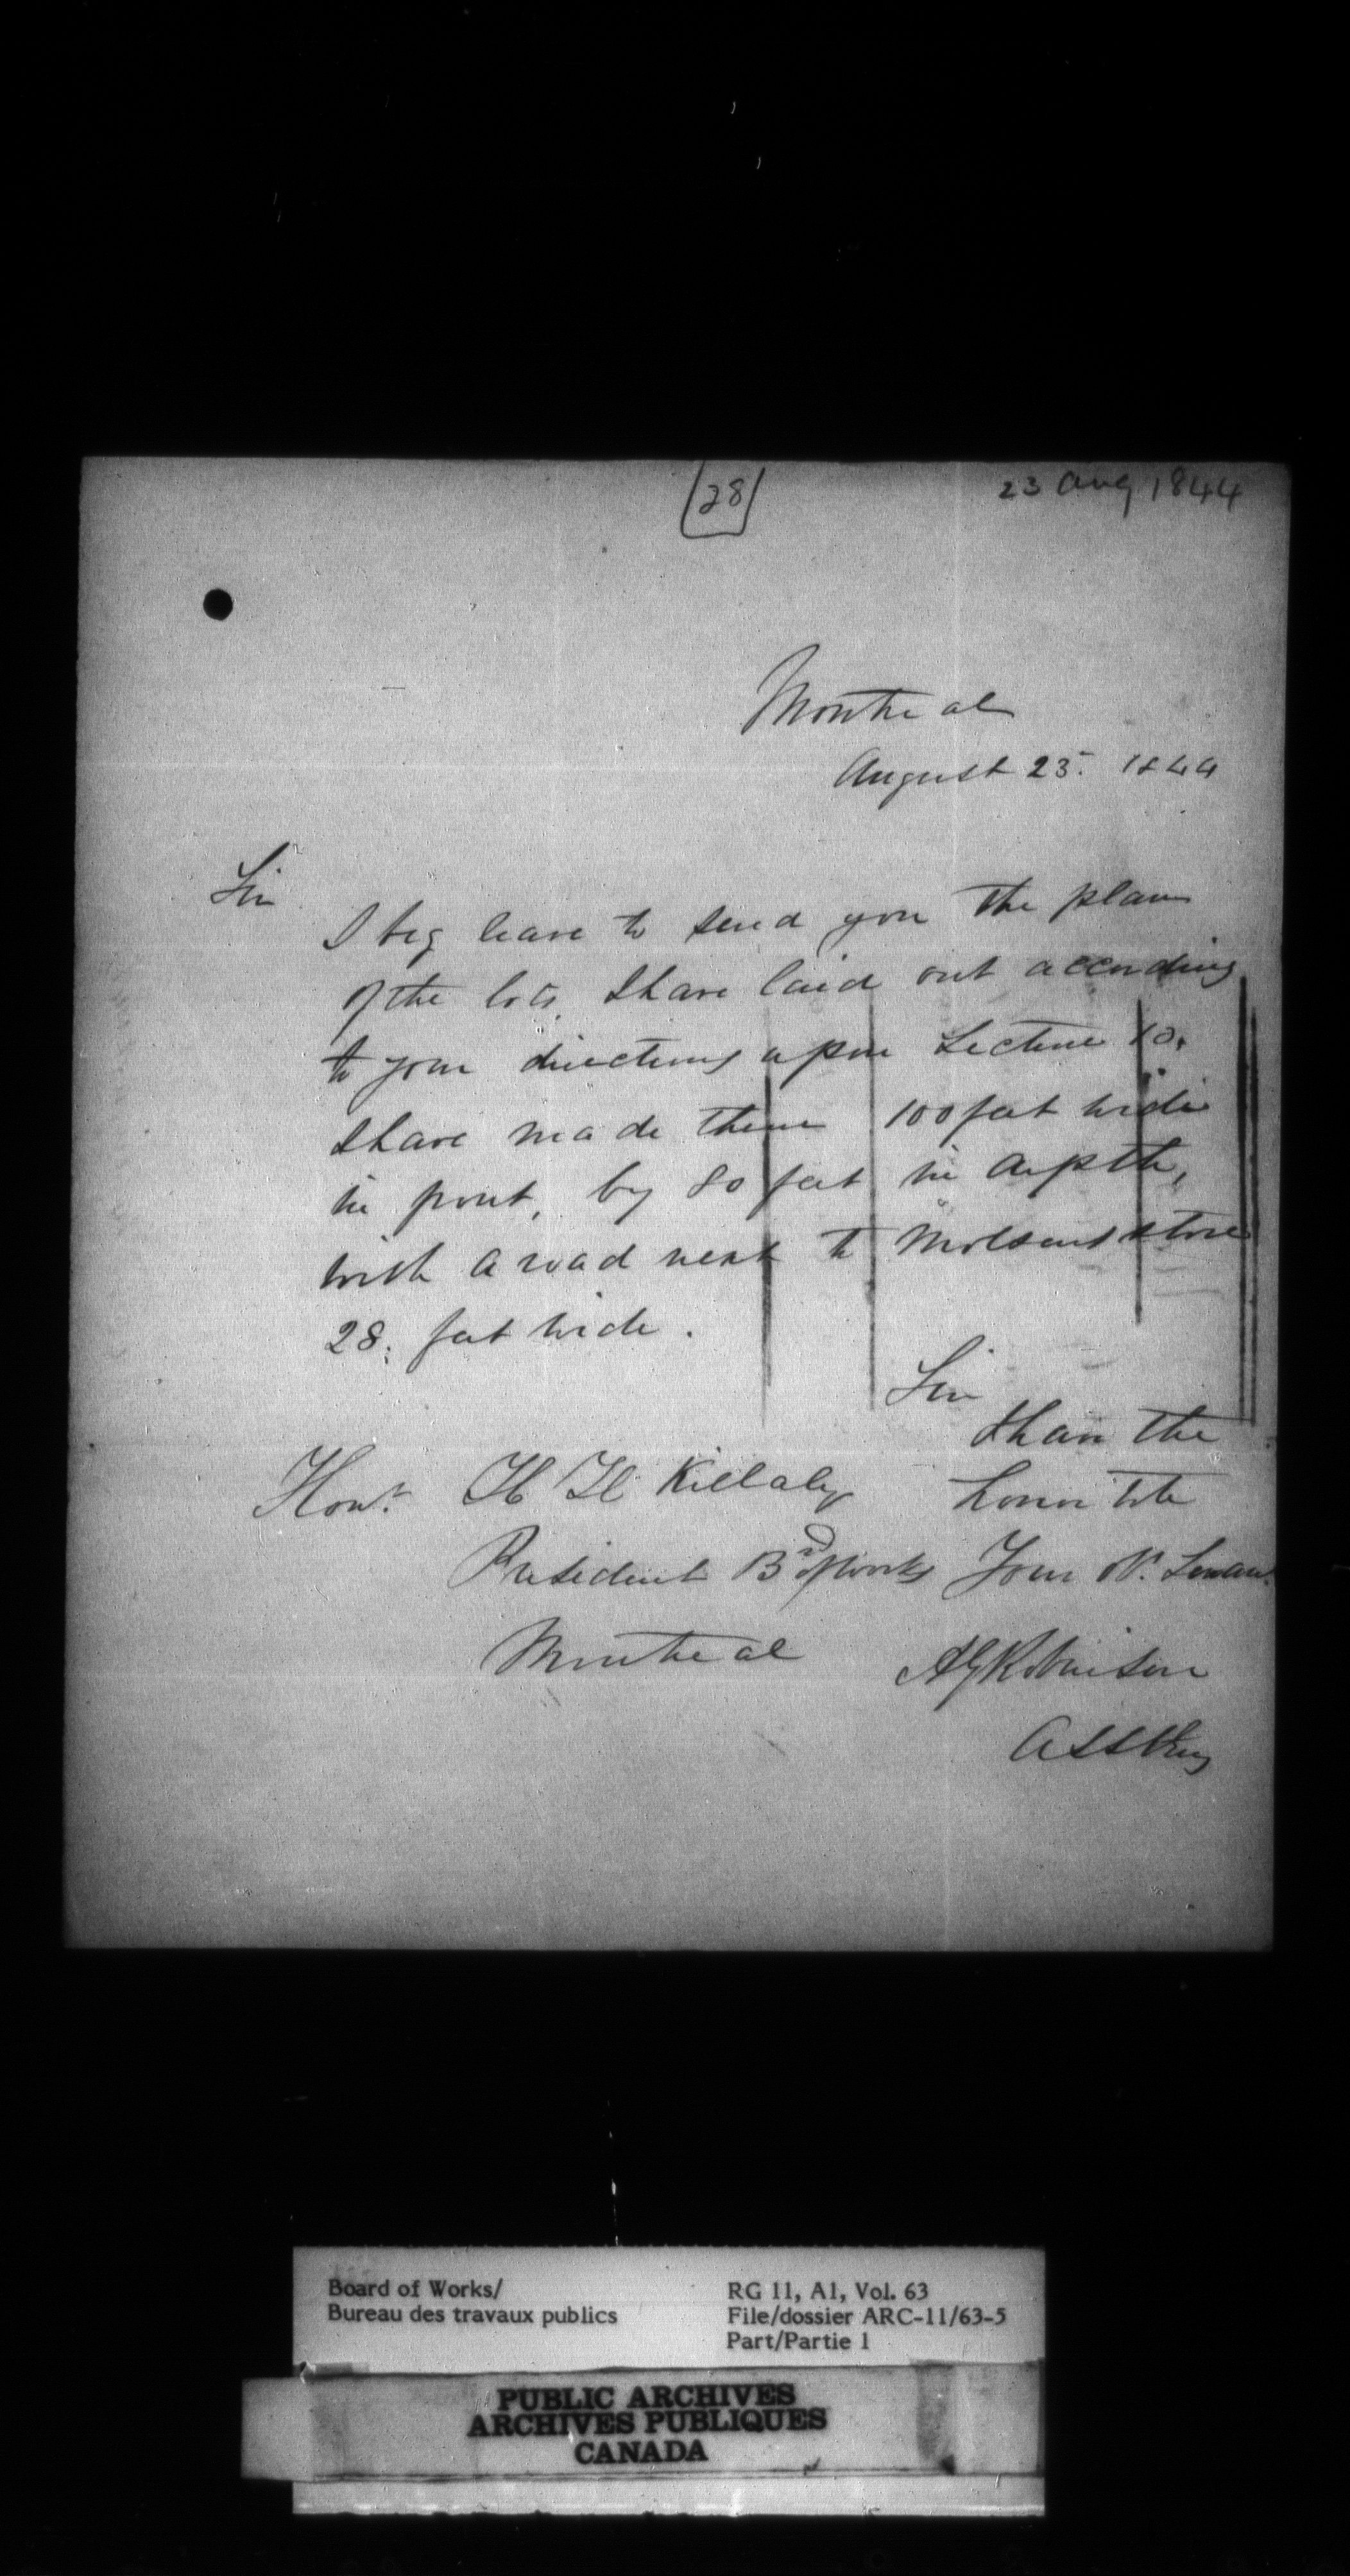 28
23 Aug 1844
Montreal
August 23. 1844
Sir
I beg leave to send you the plan
of the lots I have laid out according
to your directions upon Section 10.
I have made them 100 feet wide
in front, by 80 feet in depth,
with a road next to Molsons store
28. feet wide.
Sir
I have the
honor to be
Your Ob. Servant
Honr. H H Killaly
President Bd of Works
Montreal
AGRobinson
Ass Eng
Board of Works/
Bureau des travaux publics
RG 11, A1, Vol. 63
File/dossier ARC-11/63-5
Part/Partie 1
PUBLIC ARCHIVES
ARCHIVES PUBLIQUES
CANADA